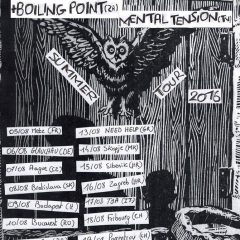 +BOILING POINT(ZA)
MENTAL TENSION(TN)
SUMMER TOUR
2016
05/08 Metz (FR)
06/08 GLAUCHAU (DE)
07/08 Prague (CZ)
08/08 Bratislava (SK)
09/08 Budapest (H)
10/08 Bucarest (RO)
13/08 NEED HELP (GR)
14/08 Skopje (MK)
15/08 Sibenik (HR)
16/08 Zagreb (HR)
17/08 TBA (IT)
18/08 Fribourg (CH)